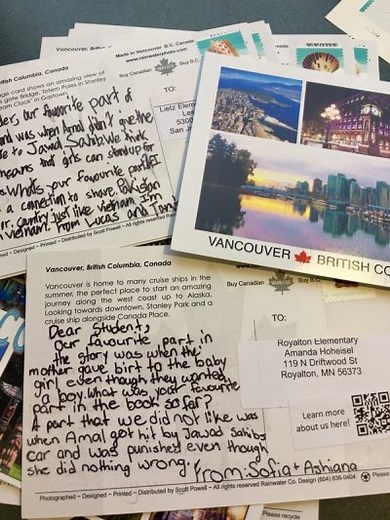 Vancouver, B
Made in Vancouver, B.C. Canada
www.rainwaterphoto.com
Buy Canadian
Buy B.C.
British Columbia, Canada
card shows an amazing view of
Gate Bridge, Totem Poles in Stanley
Clock' in Gastown.
our favourite part of
and was when Amal didn't give the
to Jawad Sahib we think
means that girls can stand up for
What's your favourite part?
a connection to share, Pakistan
Country Just like Vietnam I'm
Vietnam. From Lucas and
TO:
Lietz Elem
5300
San J
Printed - Distributed by Scott Powell ~ All rights reserved
VANCOUVER BRITISH CO
Vancouver, British Columbia, Canada
Vancouver is home to many cruise ships in the
summer, the perfect place to start an amazing
journey along the west coast up to Alaska.
Looking towards downtown, Stanley Park and a
cruise ship alongside Canada Place.
Buy Canadian
Dear Student,
Our favourite part in
the story was when the
mother gave birt to the baby
girl even though they wanted
a boy. What was your favourite
part in the book so far?
A part that we did not like was
when Amal got hit by Jawad Sahibs
car and was punished even though
she did nothing wrong. From: Sofia + Ashiana
TO:
Royalton Elementary
Amanda Hoheisel
119 N Driftwood St
Royalton, MN 56373
Learn more
about us here!
Photographed ~ Designed ~ Printed ~ Distributed by Scott Powell ~ All rights reserved Rainwater Co. Design (604) 836-0404
Please recycle